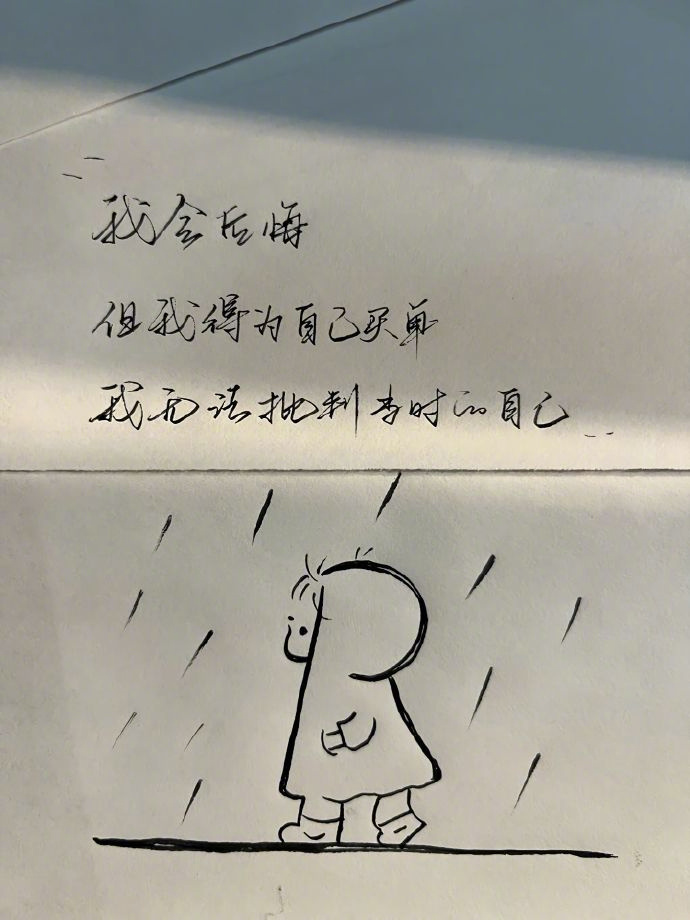 我会后悔
但我得为自己买单
我无法批判当时的自己